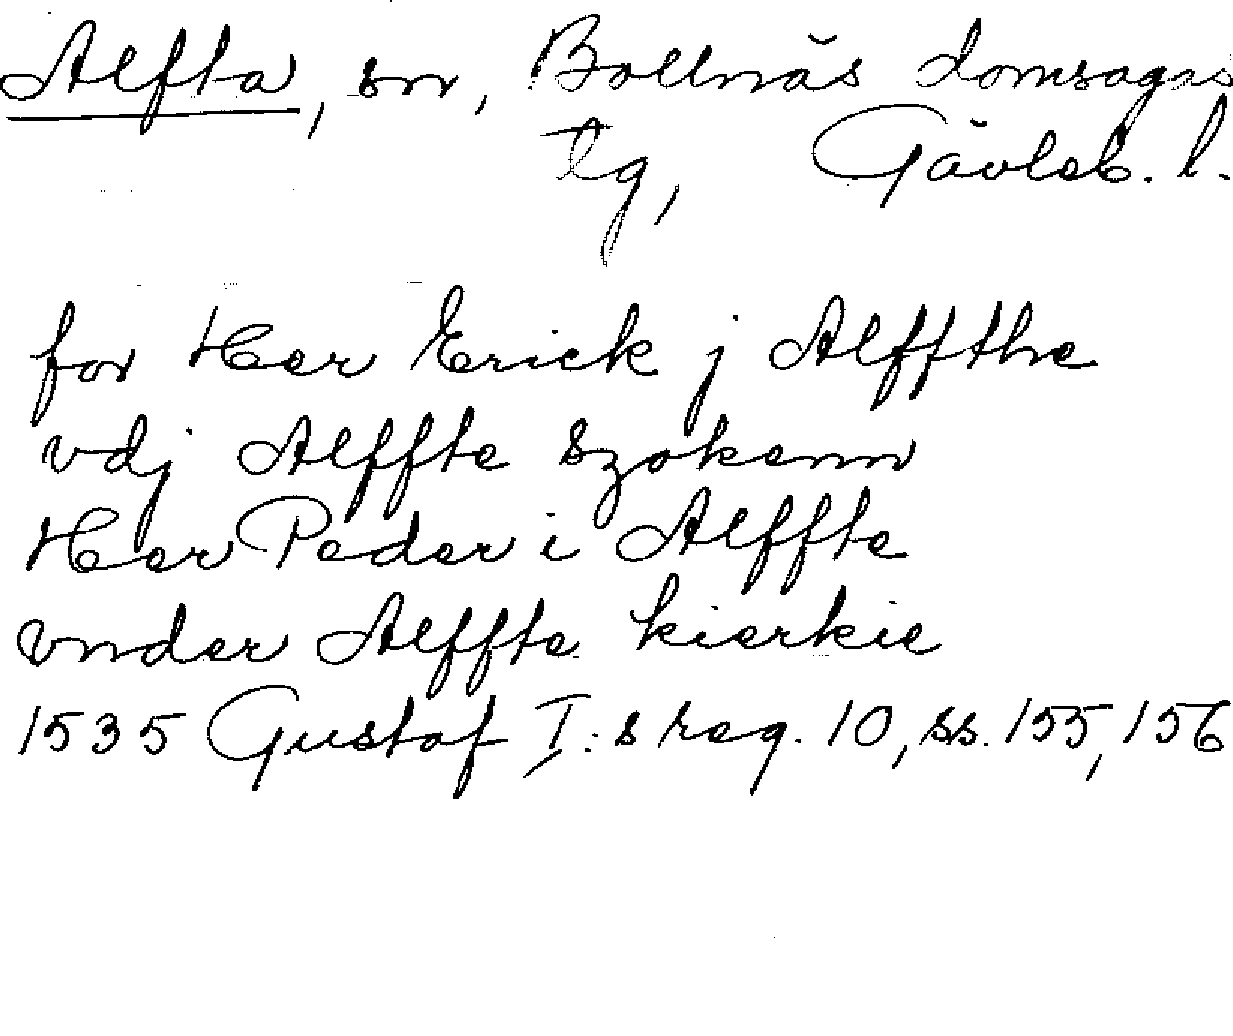 Alfta, sn, Bollnäs domsagas
tg, Gävleb. l.
for Her Erick j Alffthe
vdj Alffte szokenn
Her Peder i Alffte
vnder Alffte kierkie
1535 Gustaf I:s reg. 10, ss. 155, 156